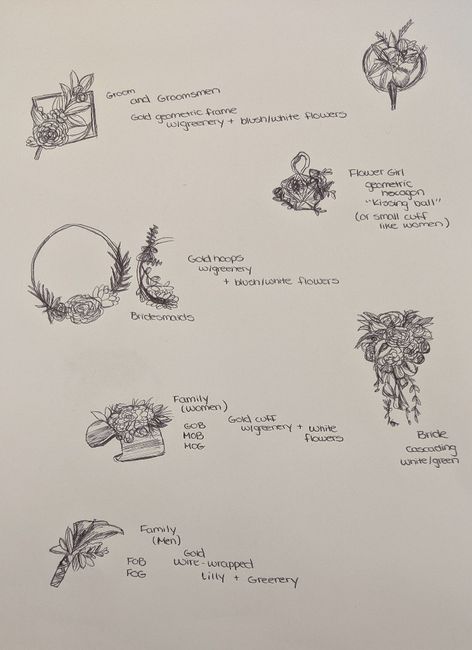 Groom
and Groomsmen
Gold geometric frame
w/greenery + blush/white flowers
Flower Girl
geometric
hexagon
"Kissing ball"
(or small cuff
like women)
Gold hoops
w/greenery
+ blush/white flowers
Bridesmaids
Family
(women)
GOB
MOB
MOG
Gold cuff
w/greenery + white
flowers
Bride
Cascading
white/green
Family
(Men)
FOB
FOG
Gold
wire-wrapped
Lilly + Greenery